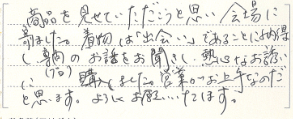 商品を見せていただこうと思い会場に
寄ました。着物は「出会い」であることに納得
し専門のお話をお聞きし、熱心なお誘い
に(プロ)購入しました。営業がお上手なのだ
と思います。ようにお願いいたします。